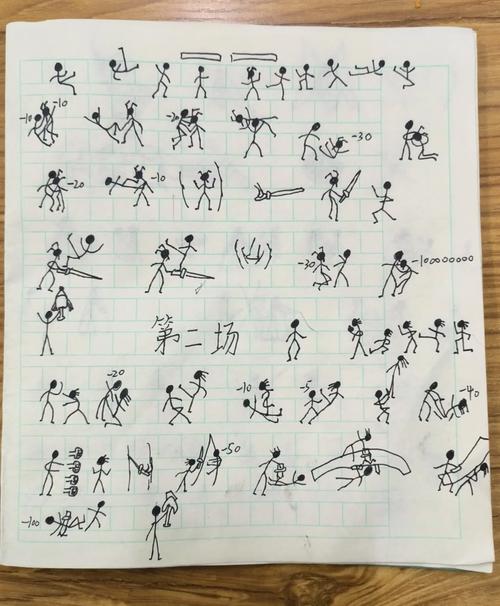 -10 -10 -20 -30
-20 -10
-30 -100000000
第二场
-20 -10 -5 -40
-50
-100